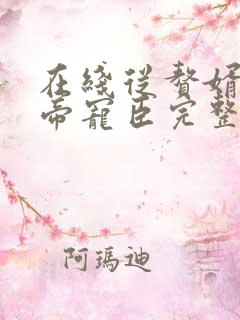 在綫從贅婿
帝寵臣完整
阿瑪迪